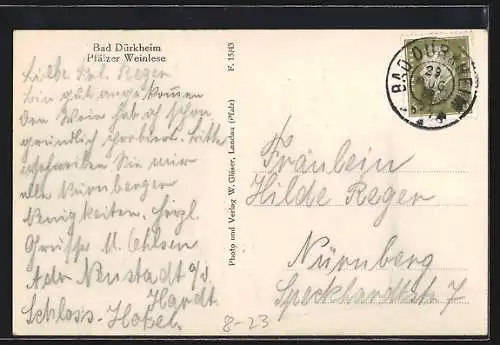 Bad Dürkheim
Pfälzer Weinlese
Liebe Frl. Reger
bin gut angekommen
Den Wein hab ich schon
gründlich probiert. Bitte
schreiben Sie mir
alle Nürnberger
Neuigkeiten. Herzl.
Grüsse M. Ehlsen
Adr Neustadt a/d
Hardt
Schloss-Hotel
F. 1543
Photo und Verlag W. Gläser, Landau (Pfalz)
BAD DÜRKHEIM
29
Fräulein
Hilde Reger
Nürnberg
Speckhardtstr. 7
8-23